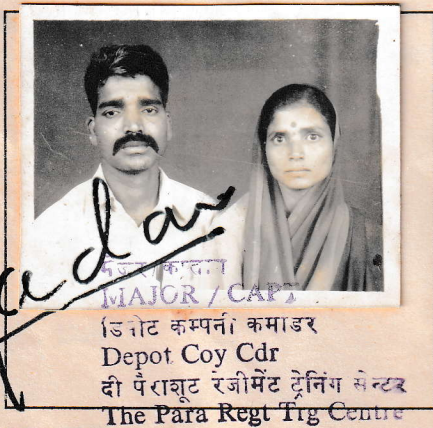 मेजर/कप्तान
MAJOR / CAPT
डिपोट कम्पनी कमाडर
Depot Coy Cdr
दी पैराशूट रेजीमेंट ट्रेनिंग सेन्टर
The Para Regt Trg Centre